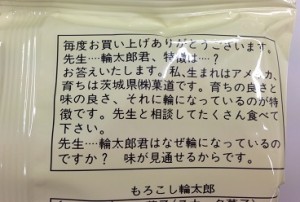 毎度お買い上げありがとうございます。
先生‥‥輪太郎君、特徴は‥‥?
お答えいたします。私、生まれはアメリカ、
育ちは茨城県㈱菓道です。育ちの良さと
味の良さ、それに輪になっているのが特
徴です。先生と相談してたくさん食べて
下さい。
先生‥‥輪太郎君はなぜ輪になっているの
ですか? 味が見通せるからです。
もろこし輪太郎